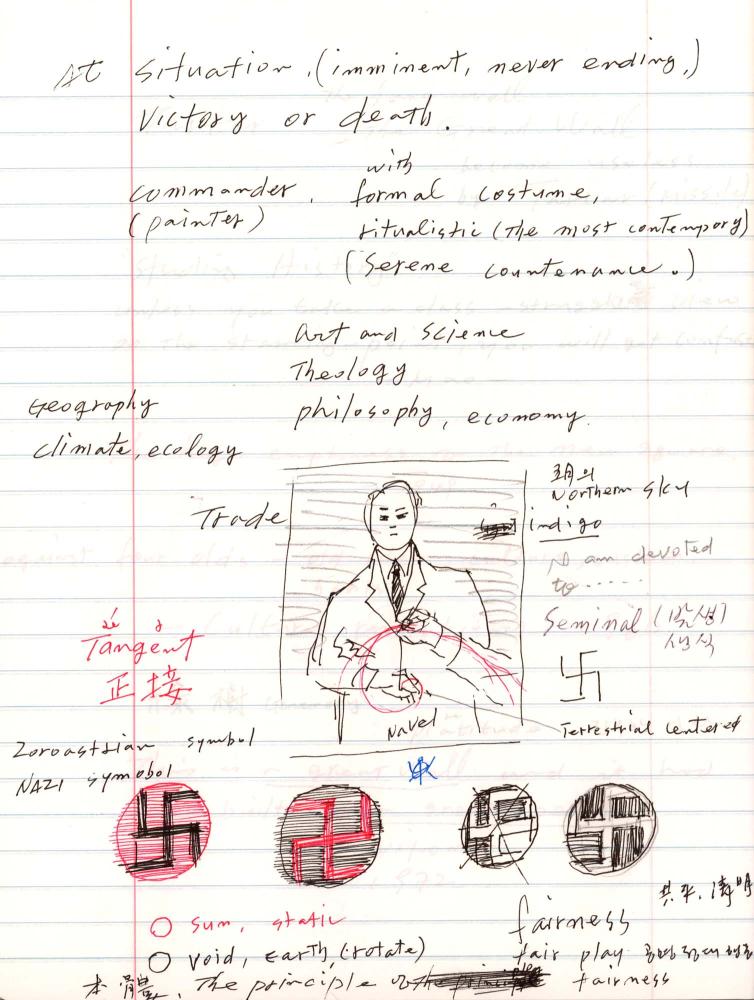 At situation, (imminent, never ending,)
Victory or death.
with
commander, formal costume,
(painter) ritualistic (the most contempory)
(serene countenance.)
Art and science
Theology
Geography
philosophy, economy.
climate, ecology
Trade
Northern sky
indigo
I am devoted
to ......
Seminal (발생)
생식
Tangent
正接
Navel
Terrestrial centered
Zoroastrian symbol
NAZI symobol
sun, static
fairness
void, Earth (rotate)
fair play
The principle of fairness